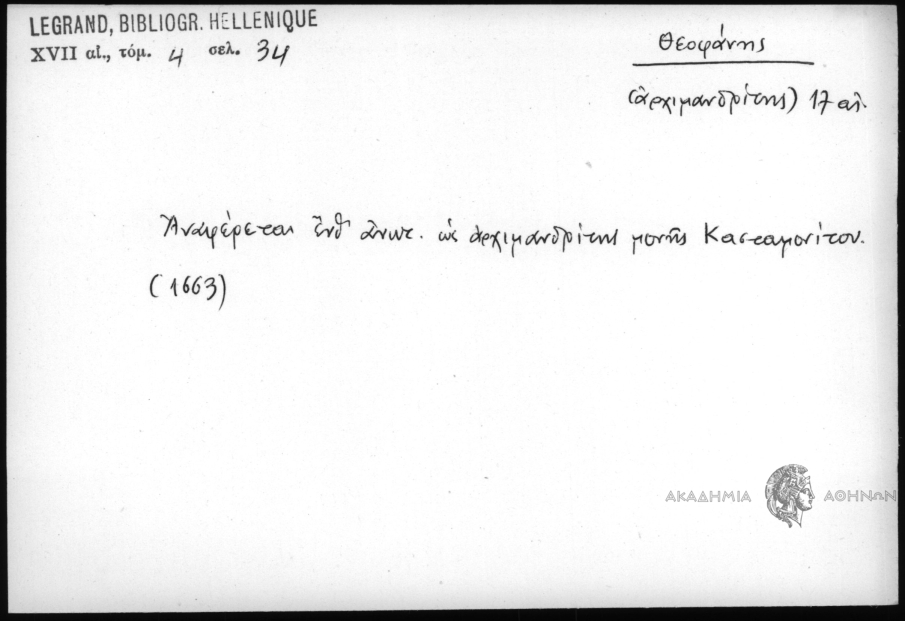 LEGRAND, BIBLIOGR. HELLENIQUE
XVII αἰ., τόμ. 4 σελ. 34
Θεοφάνης
(ἀρχιμανδρίτης) 17 αἰ.
Ἀναφέρεται ἔνθ' ἄνωτ. ὡς ἀρχιμανδρίτης μονῆς Κασταμονίτου.
(1663)
ΑΚΑΔΗΜΙΑ ΑΘΗΝΩΝ